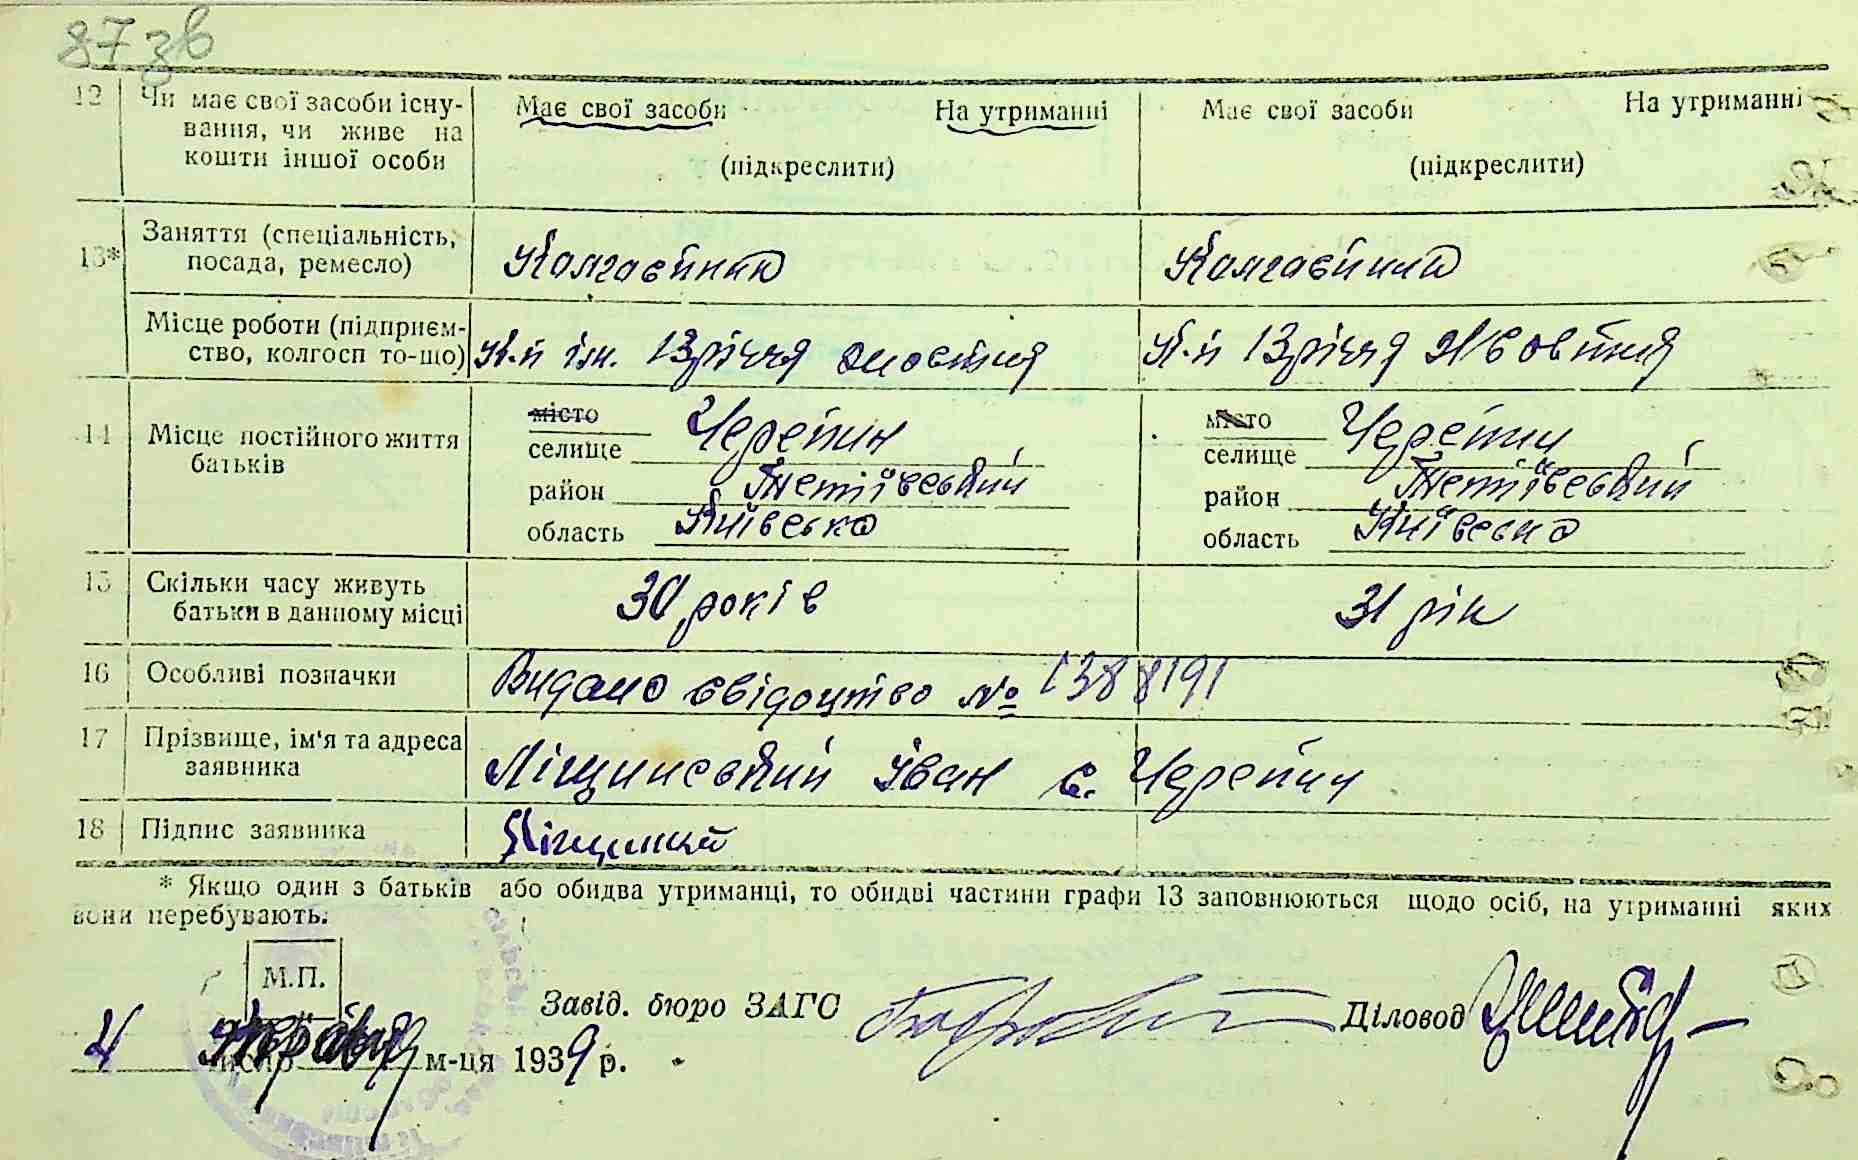 87 зв
12 Чи має свої засоби існу- Має свої засоби На утриманні Має свої засоби На утриманні
вання, чи живе на
кошти іншої особи (підкреслити) (підкреслити)
13* Заняття (спеціальність, посада, ремесло) Колгоспник Колгоспниця
Місце роботи (підприєм-
ство, колгосп то-що) К-п ім. 13річчя жовтня К-п 13річчя Жовтня
14 Місце постійного життя батьків
місто місто
селище Черепин селище Черепин
район Тетіївський район Тетіївський
область Київська область Київська
15 Скільки часу живуть
батьки в данному місці 30 років 31 рік
16 Особливі позначки Видано свідоцтво № 1388191
17 Прізвище, ім'я та адреса
заявника Ліщинський Іван с. Черепин
18 Підпис заявника
* Якщо один з батьків або обидва утриманці, то обидві частини графи 13 заповнюються щодо осіб, на утриманні яких
вони перебувають.
М.П.
Завід. бюро ЗАГС Діловод
4 число м-ця 1939 р.